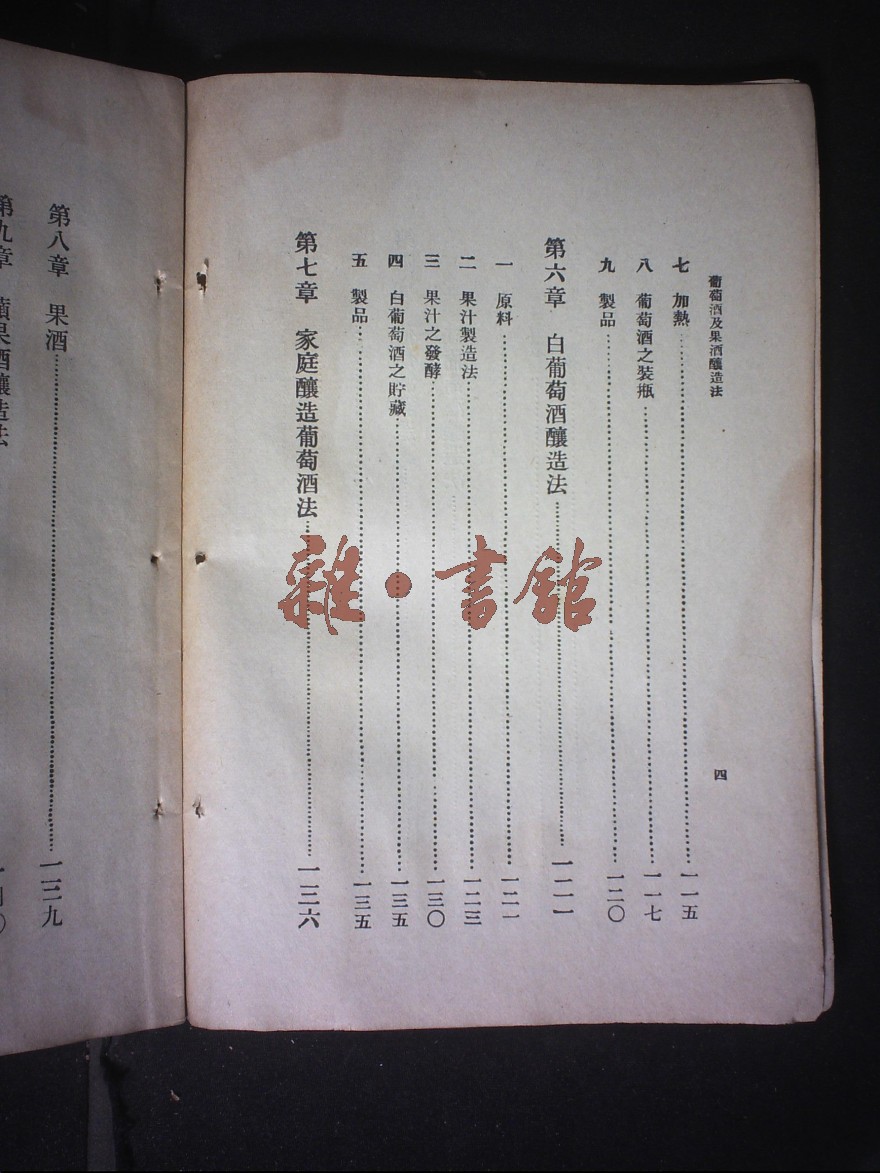 葡萄酒及果酒釀造法
四
七 加熱……一一五
八 葡萄酒之裝瓶……一一七
九 製品……一二〇
第六章 白葡萄酒釀造法……一二一
一 原料……一二一
二 果汁製造法……一二三
三 果汁之發酵……一三〇
四 白葡萄酒之貯藏……一三五
五 製品……一三五
第七章 家庭釀造葡萄酒法……一三六
第八章 果酒……一三九
第九章 蘋果酒釀造法
雜·書館